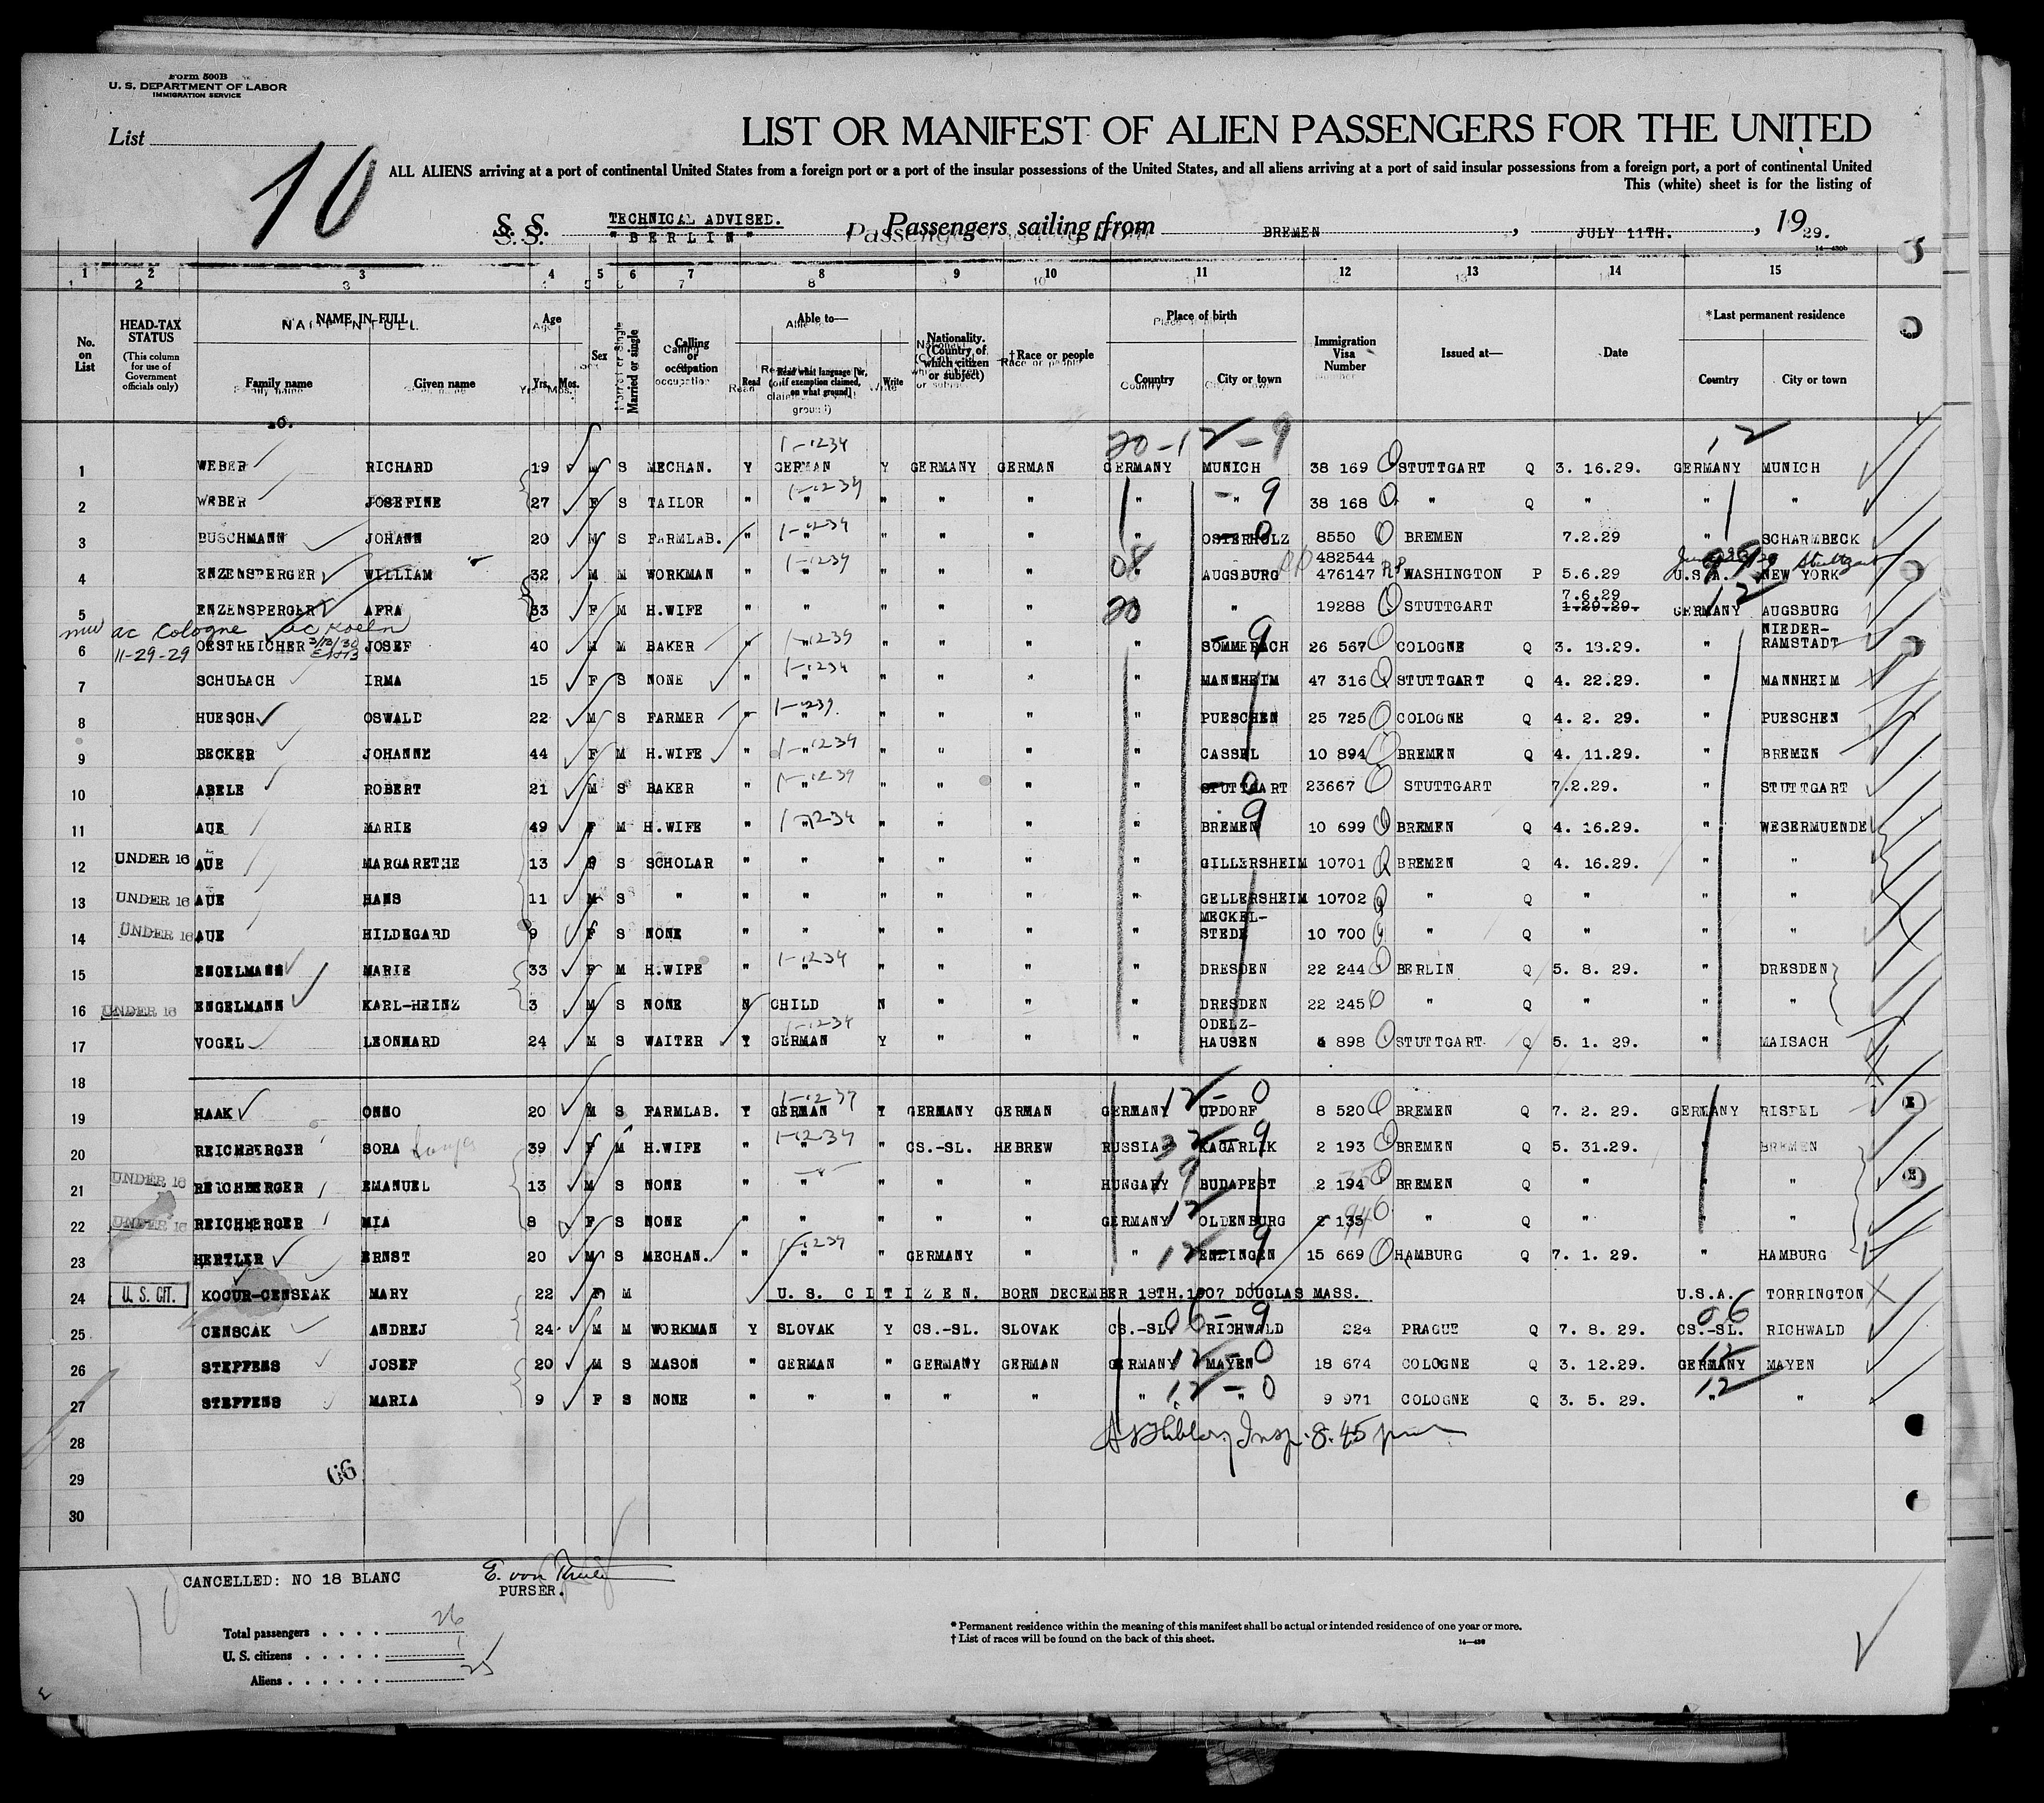 Form 500B
U. S. DEPARTMENT OF LABOR
IMMIGRATION SERVICE
List
10
LIST OR MANIFEST OF ALIEN PASSENGERS FOR THE UNITED
ALL ALIENS arriving at a port of continental United States from a foreign port or a port of the insular possessions of the United States, and all aliens arriving at a port of said insular possessions from a foreign port, a port of continental United
This (white) sheet is for the listing of
TECHNICAL ADVISED.
S. S. "BERLIN", Passengers sailing from BREMEN, JULY 11TH., 1929.
1 2 3 4 5 6 7 8 9 10 11 12 13 14 15
No. on List HEAD-TAX STATUS (This column for use of Government officials only) NAME IN FULL Family name Given name Age Yrs. Mos. Sex Married or single Calling or occupation Able to— Read Read what language [or, if exemption claimed, on what ground] Write Nationality. (Country of which citizen or subject) †Race or people Place of birth Country City or town Immigration Visa Number Issued at— Date *Last permanent residence Country City or town
20-12-9 12
1 WEBER RICHARD 19 M S MECHAN. Y GERMAN Y GERMANY GERMAN GERMANY MUNICH 38 169 STUTTGART Q 3. 16.29. GERMANY MUNICH
2 WEBER JOSEFINE 27 F S TAILOR " " " " " " " 38 168 " Q " " "
3 BUSCHMANN JOHANN 20 M S FARMLAB. " " " " " " OSTERHOLZ 8550 BREMEN 7.2.29 " SCHARMBECK
482544
4 ENZENSPERGER WILLIAM 32 M M WORKMAN " " " " " " AUGSBURG 476147 WASHINGTON P 5.6.29 U.S.A. NEW YORK
7.6.29
5 ENZENSPERGER AFRA 33 F M H.WIFE " " " " " " 19288 STUTTGART 1.29.29. GERMANY AUGSBURG
ac Cologne ac Koeln
11-29-29 3/12/30
6 OESTREICHER JOSEF 40 M M BAKER " " " " " " SOMMERACH 26 567 COLOGNE Q 3. 13.29. " NIEDER-RAMSTADT
7 SCHULACH IRMA 15 F S NONE " " " " " " MANNHEIM 47 316 STUTTGART Q 4. 22.29. " MANNHEIM
8 HUESCH OSWALD 22 M S FARMER " " " " " " PUESCHEN 25 725 COLOGNE Q 4. 2. 29. " PUESCHEN
9 BECKER JOHANNE 44 F M H.WIFE " " " " " " CASSEL 10 894 BREMEN Q 4. 11.29. " BREMEN
10 ABELE ROBERT 21 M S BAKER " " " " " " STUTTGART 23667 STUTTGART 7.2.29. " STUTTGART
11 AUE MARIE 49 F M H.WIFE " " " " " " BREMEN 10 699 BREMEN Q 4. 16.29. " WESERMUENDE
12 UNDER 16 AUE MARGARETHE 13 F S SCHOLAR " " " " " " GILLERSHEIM 10701 BREMEN Q 4. 16.29. " "
13 UNDER 16 AUE HANS 11 M S " " " " " " " GELLERSHEIM 10702 " Q " " "
14 UNDER 16 AUE HILDEGARD 9 F S NONE " " " " " " MECKEL-STEDE 10 700 " Q " " "
15 ENGELMANN MARIE 33 F M H.WIFE " " " " " " DRESDEN 22 244 BERLIN Q 5. 8. 29. " DRESDEN
16 UNDER 16 ENGELMANN KARL-HEINZ 3 M S NONE N CHILD N " " " DRESDEN 22 245 " Q " " "
17 VOGEL LEONHARD 24 M S WAITER Y GERMAN Y " " " ODELZ-HAUSEN 898 STUTTGART Q 5. 1. 29. " MAISACH
18
19 HAAK ONNO 20 M S FARMLAB. Y GERMAN Y GERMANY GERMAN GERMANY UPDORF 8 520 BREMEN Q 7. 2. 29. GERMANY RISPEL
20 REICHBERGER SORA 39 F M H.WIFE " " " CS.-SL. HEBREW RUSSIA KAGARLIK 2 193 BREMEN Q 5. 31.29. " BREMEN
21 UNDER 16 REICHBERGER EMANUEL 13 M S NONE " " " " " HUNGARY BUDAPEST 2 194 BREMEN Q " " "
22 UNDER 16 REICHBERGER MIA 8 F S NONE " " " " " GERMANY OLDENBURG 2 135 " Q " " "
23 HERTLER ERNST 20 M S MECHAN. " " " GERMANY " " ENDINGEN 15 669 HAMBURG Q 7. 1. 29. " HAMBURG
24 U. S. CIT. KOCUR-CENSEAK MARY 22 F M U.S. CITIZEN. BORN DECEMBER 18TH.1907 DOUGLAS MASS. U.S.A. TORRINGTON
25 CENSCAK ANDREJ 24 M M WORKMAN Y SLOVAK Y CS.-SL. SLOVAK CS.-SL. RICHWALD 224 PRAGUE Q 7. 8. 29. CS.-SL. RICHWALD
26 STEFFENS JOSEF 20 M S MASON " GERMAN " GERMANY GERMAN GERMANY MAYEN 18 674 COLOGNE Q 3. 12.29. GERMANY MAYEN
27 STEFFENS MARIA 9 F S NONE " " " " " " " 9 971 COLOGNE Q 3. 5. 29. " "
28 Insp. 8.45 pm
29 66
30
CANCELLED: NO 18 BLANC E. von
PURSER.
Total passengers 26
U. S. citizens 1
Aliens 25
* Permanent residence within the meaning of this manifest shall be actual or intended residence of one year or more.
† List of races will be found on the back of this sheet.